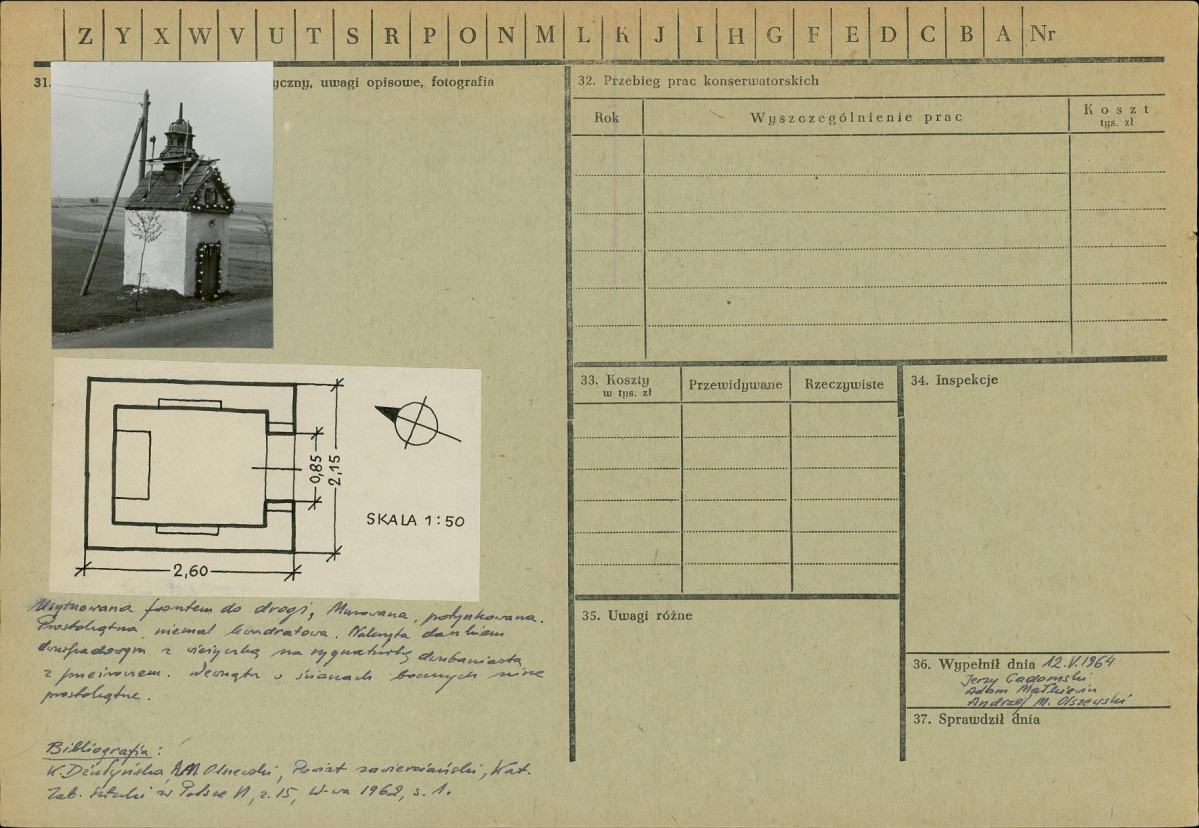 Z Y X W V U T S R P O N M L K J I H G F E D C B A Nr
31. yczny, uwagi opisowe, fotografia
0,85
2,15
2,60
SKALA 1:50
Usytuowana frontem do drogi, Murowana, potynkowana.
Prostokątna, niemal kwadratowa. Nakryta daszkiem
dwuspadowym z wieżyczką na sygnaturkę dwubaniastą
z prześwitem. Wewnątrz w ścianach bocznych nisze
prostokątne.
Bibliografia:
K. Dziutyńska, A.M. Olszewski, Powiat zawierciański, Kat.
Zab. Sztuki w Polsce VI, z. 15, W-wa 1962, s. 1.
32. Przebieg prac konserwatorskich
Rok Wyszczególnienie prac Koszt
tys. zł
33. Koszty
w tys. zł
Przewidywane Rzeczywiste
34. Inspekcje
35. Uwagi różne
36. Wypełnił dnia 12.V.1964
Jerzy Gadomski
Adam Małkiewicz
Andrzej M. Olszewski
37. Sprawdził dnia